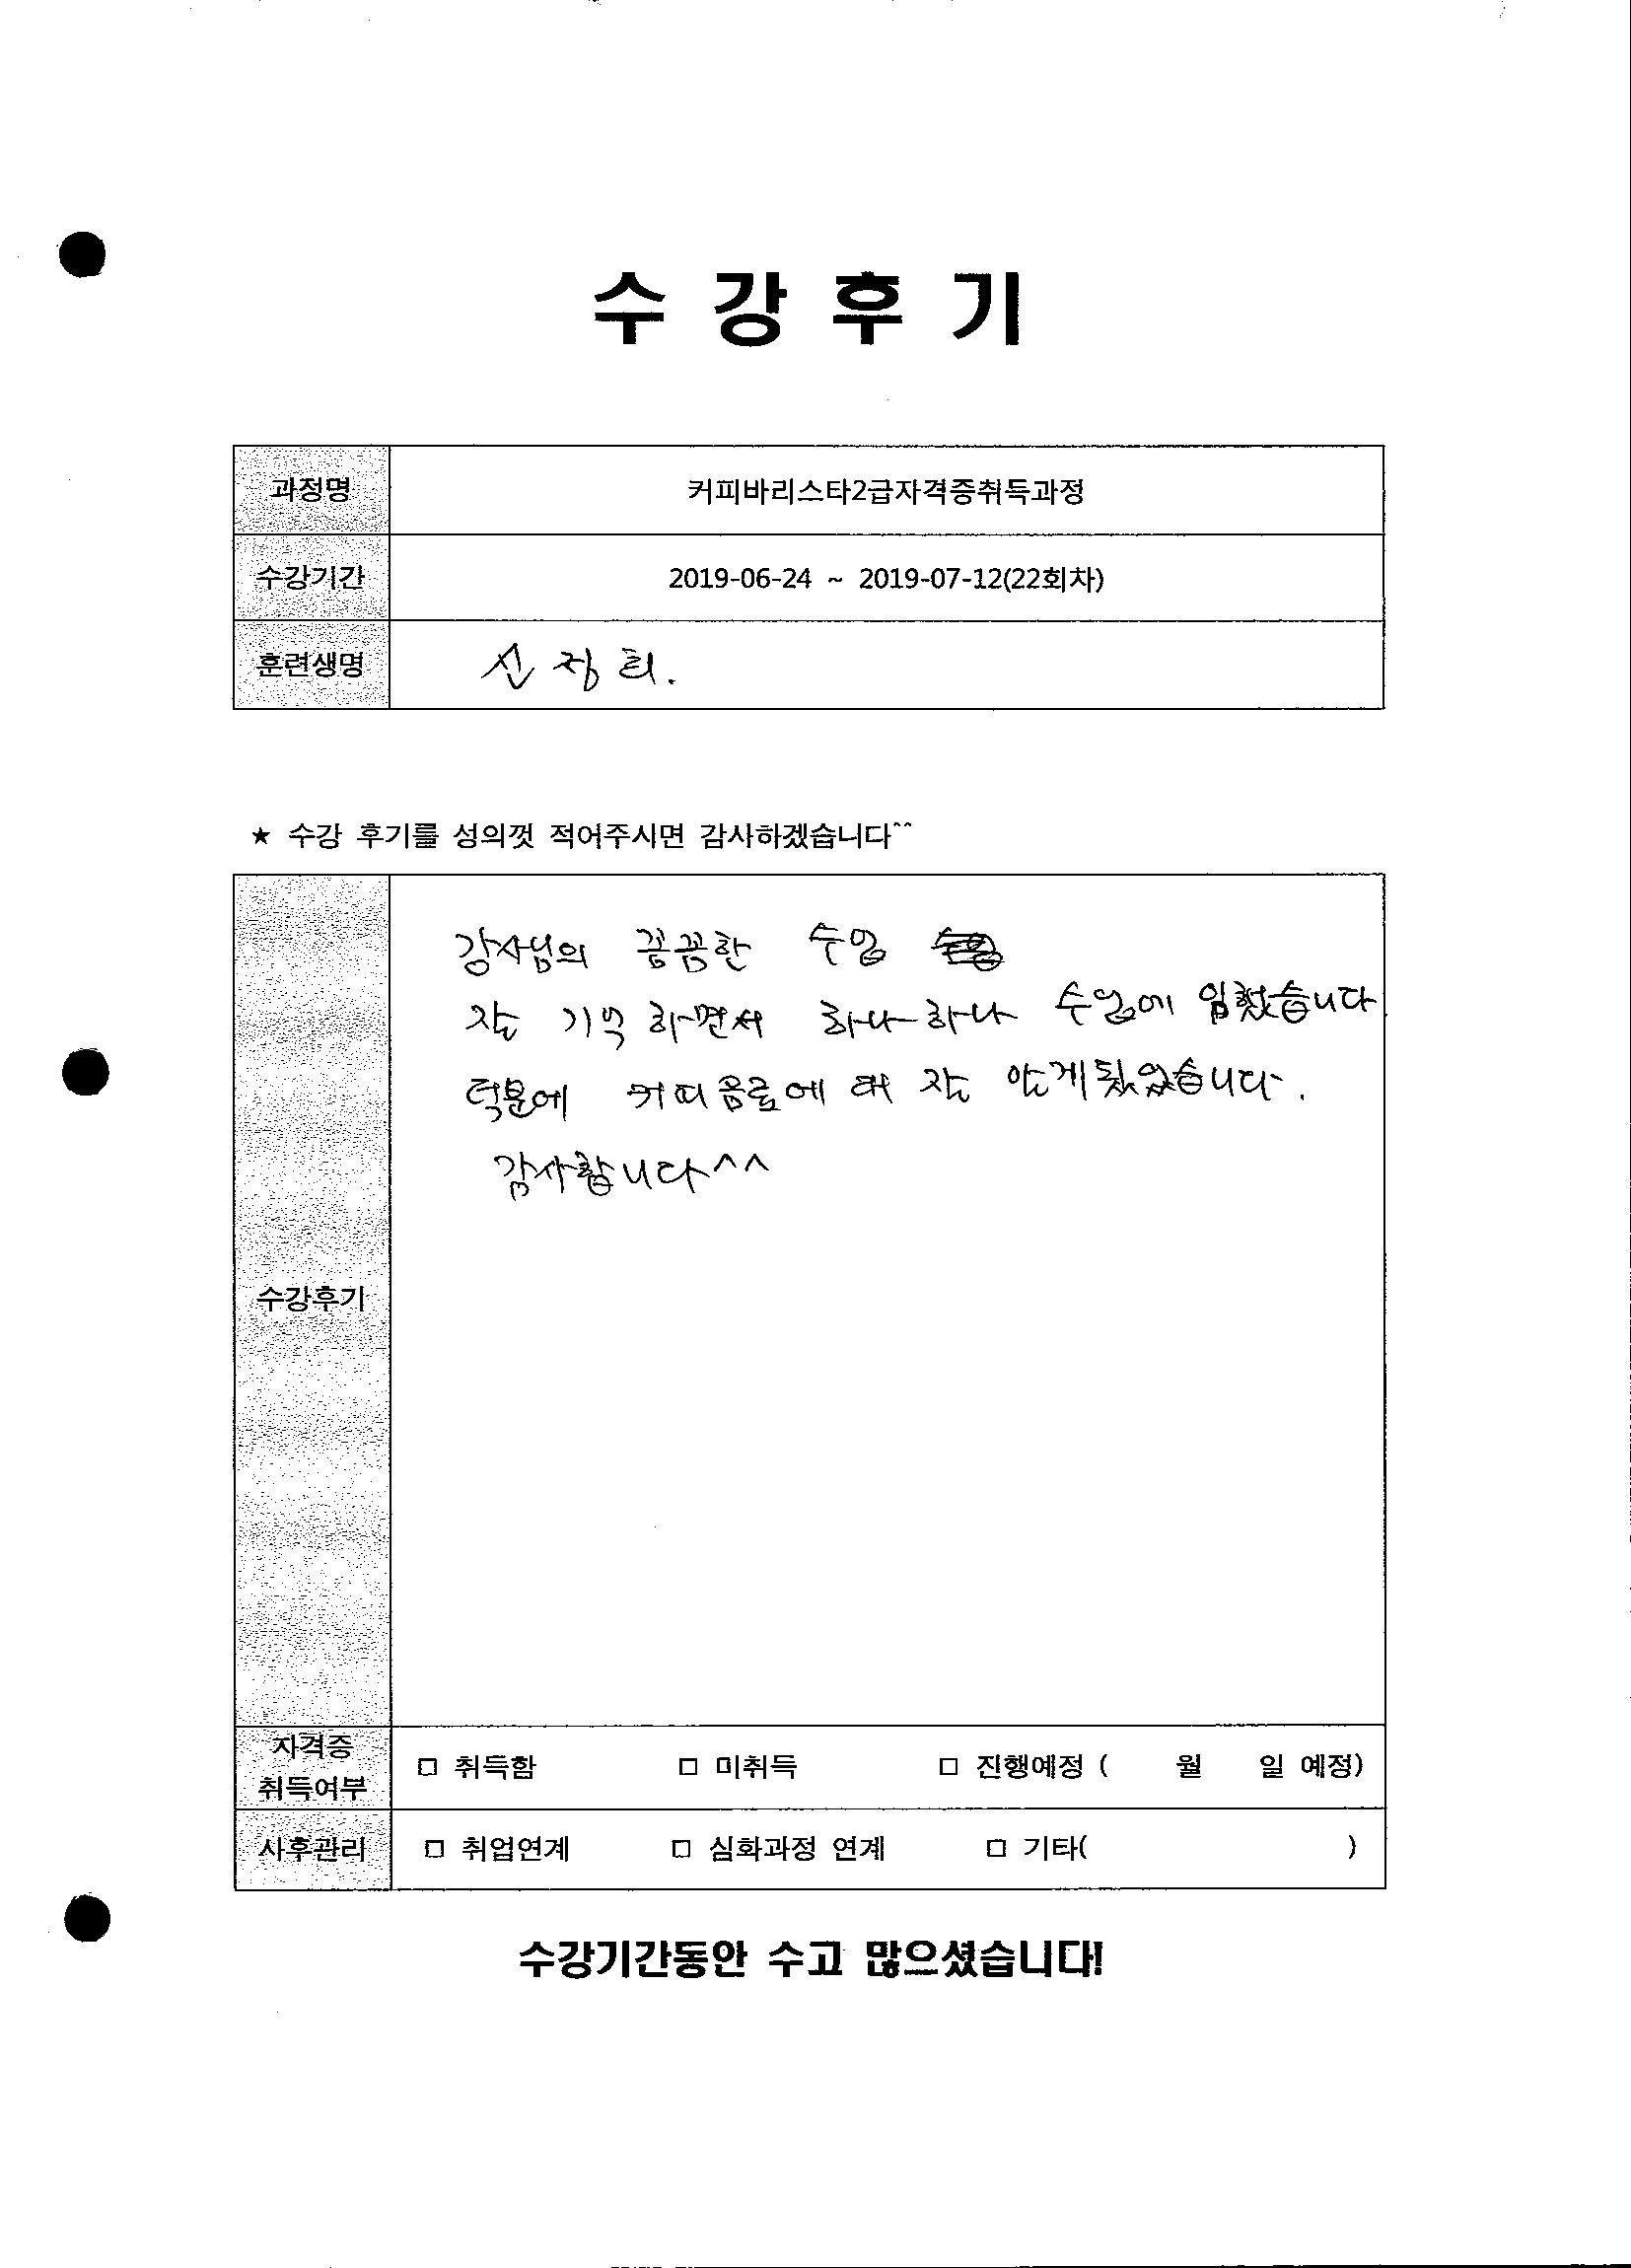 수강후기
과정명 커피바리스타2급자격증취득과정
수강기간 2019-06-24 ~ 2019-07-12(22회차)
훈련생명 신장희.
★ 수강 후기를 성의껏 적어주시면 감사하겠습니다^^
강사님의 꼼꼼한 수업
잘 기억 하면서 하나하나 수업에 임했습니다
덕분에 커피음료에 대 잘 알게됬었습니다.
감사합니다^^
수강후기
자격증
취득여부
□ 취득함 □ 미취득 □ 진행예정 ( 월 일 예정)
사후관리 □ 취업연계 □ 심화과정 연계 □ 기타( )
수강기간동안 수고 많으셨습니다!